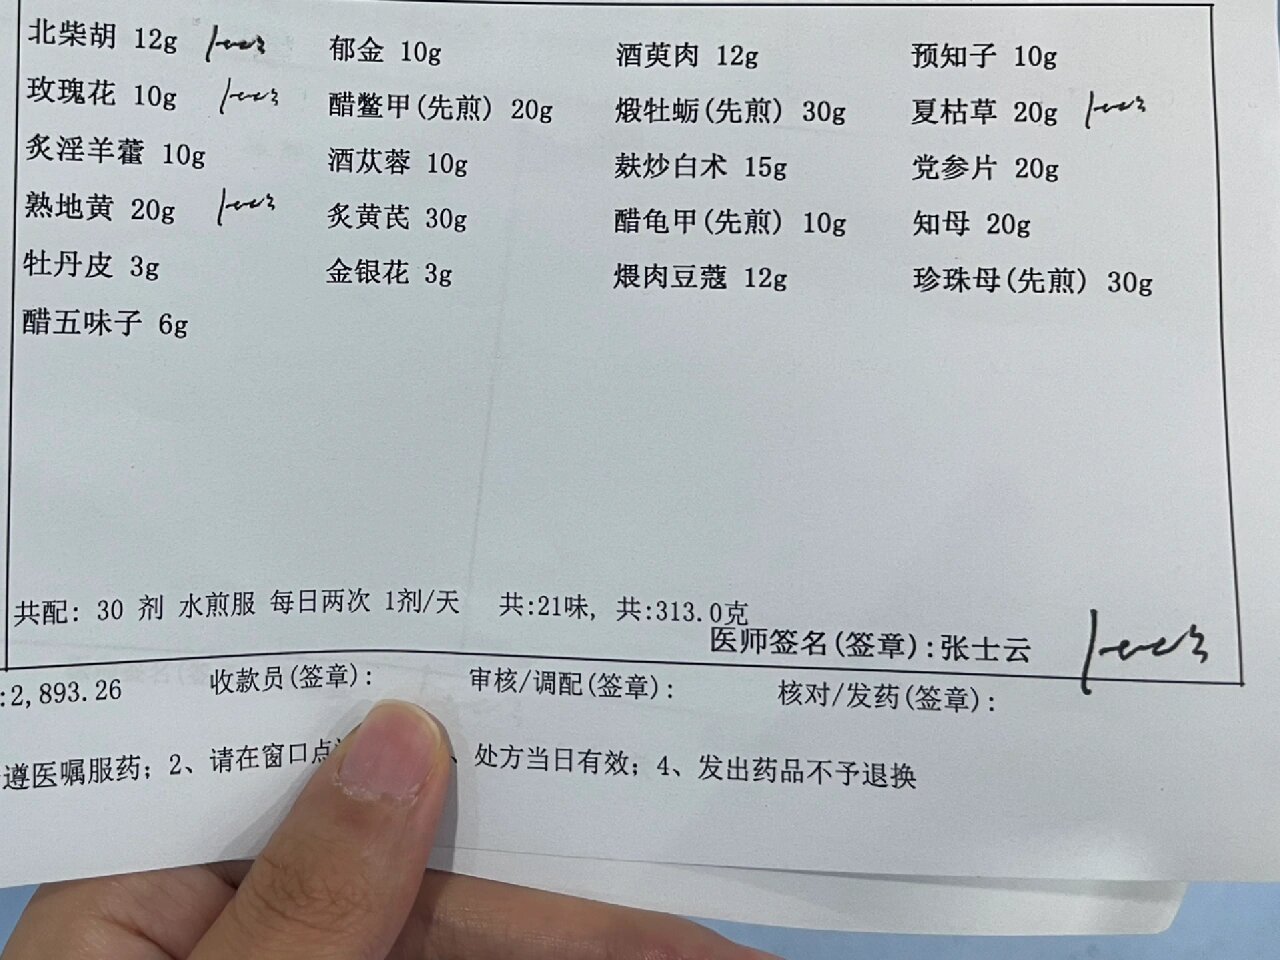 北柴胡 12g 郁金 10g 酒萸肉 12g 预知子 10g
玫瑰花 10g 醋鳖甲(先煎) 20g 煅牡蛎(先煎) 30g 夏枯草 20g
炙淫羊藿 10g 酒苁蓉 10g 麸炒白术 15g 党参片 20g
熟地黄 20g 炙黄芪 30g 醋龟甲(先煎) 10g 知母 20g
牡丹皮 3g 金银花 3g 煨肉豆蔻 12g 珍珠母(先煎) 30g
醋五味子 6g
共配: 30 剂 水煎服 每日两次 1剂/天 共:21味, 共:313.0克
医师签名(签章):张士云
:2,893.26 收款员(签章): 审核/调配(签章): 核对/发药(签章):
遵医嘱服药; 2、请在窗口点 、处方当日有效; 4、发出药品不予退换